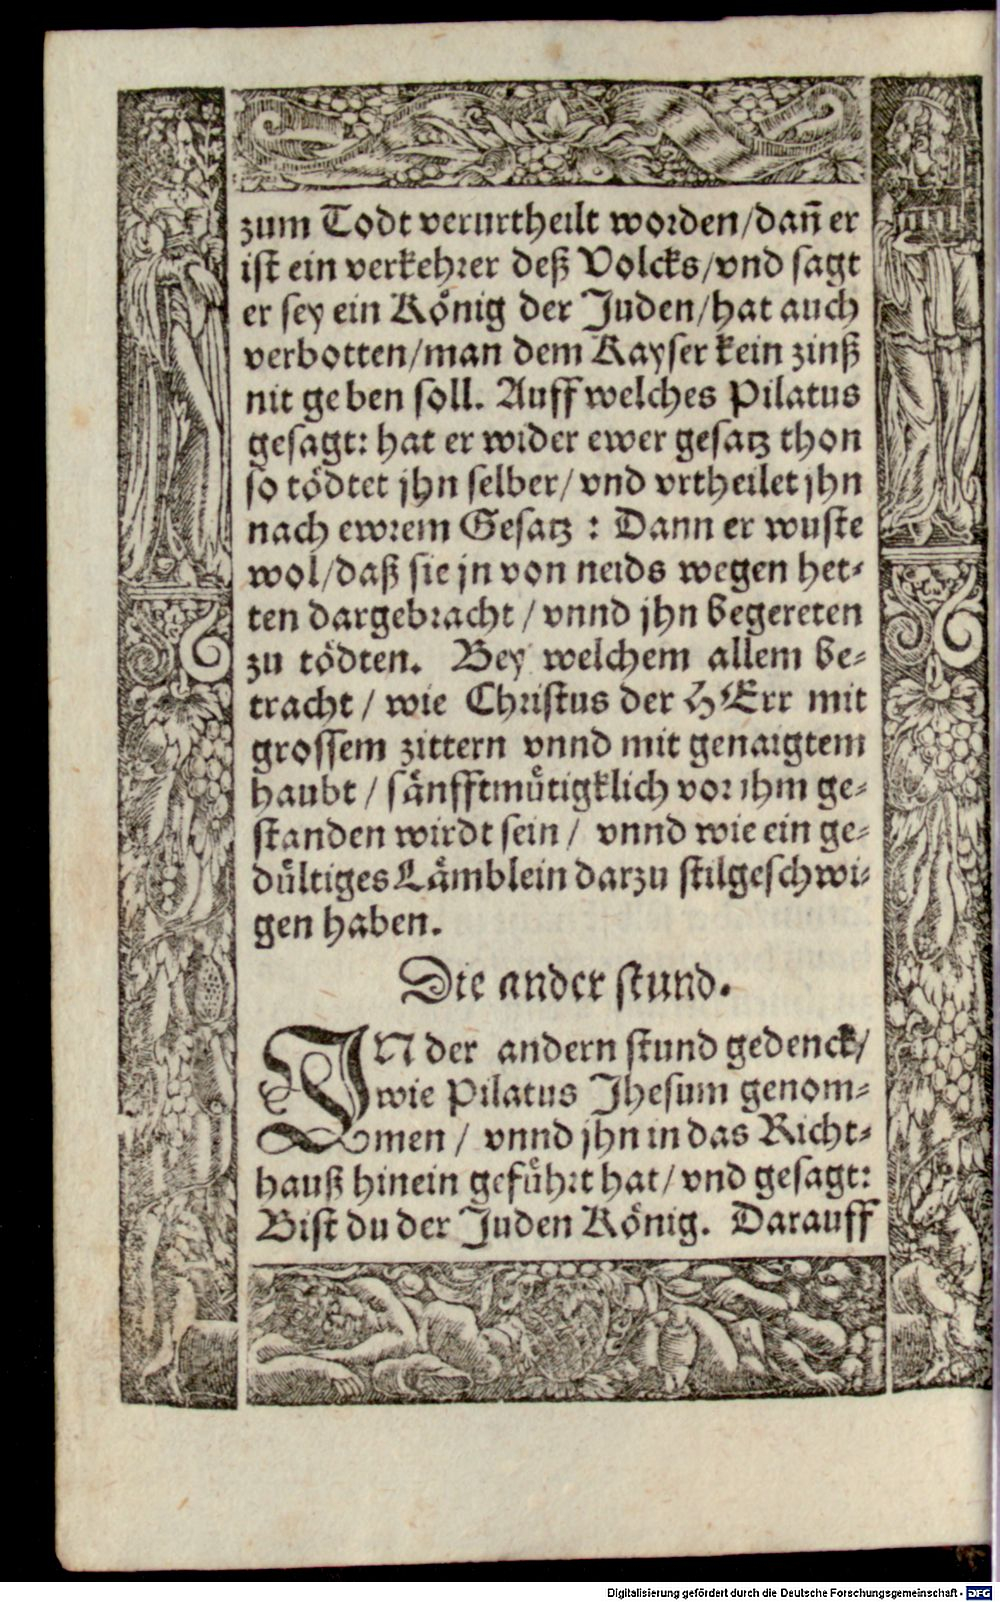 zum Todt verurtheilt worden/dañ er
ist ein verkehrer deß Volcks/vnd sagt
er sey ein König der Juden/hat auch
verbotten/man dem Kayser kein zinß
nit geben soll. Auff welches Pilatus
gesagt: hat er wider ewer gesatz thon
so tödtet jhn selber/ vnd vrtheilet jhn
nach ewrem Gesatz : Dann er wuste
wol/daß sie jn von neids wegen het⸗
ten dargebracht / vnnd jhn begereten
zu tödten. Bey welchem allem be⸗
tracht / wie Christus der HErr mit
grossem zittern vnnd mit genaigtem
haubt / sänfftmütigklich vor ihm ge⸗
standen wirdt sein / vnnd wie ein ge⸗
dültiges Lämblein darzu stilgeschwi⸗
gen haben.
Die ander stund.
IN der andern stund gedenck/
wie Pilatus Jhesum genom⸗
men / vnnd jhn in das Richt⸗
hauß hinein geführt hat/ vnd gesagt:
Bist du der Juden König. Darauff
Digitalisierung gefördert durch die Deutsche Forschungsgemeinschaft - DFG